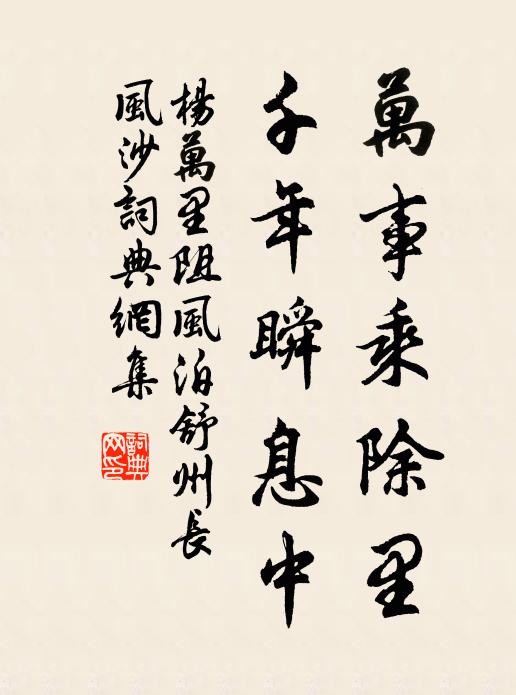 萬事乘除里
千年瞬息中
楊萬里阻風泊舒州長
風沙詞典網集
詞典
网印